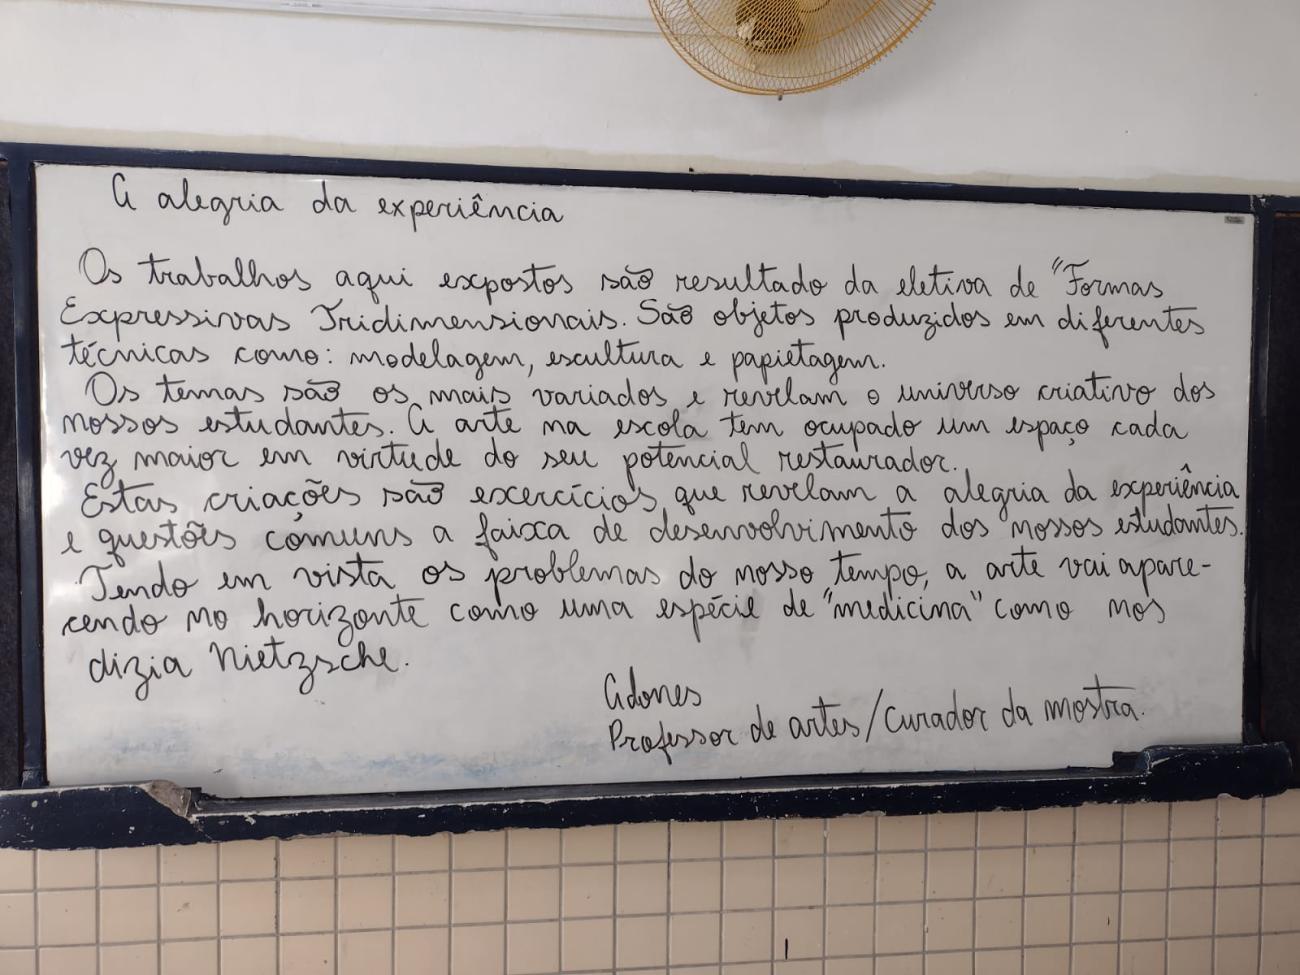 A alegria da experiência
Os trabalhos aqui expostos são resultado da eletiva de "Formas
Expressivas Tridimensionais. São objetos produzidos em diferentes
técnicas como: modelagem, escultura e papietagem.
Os temas são os mais variados e revelam o universo criativo dos
nossos estudantes. A arte na escola tem ocupado um espaço cada
vez maior em virtude do seu potencial restaurador.
Estas criações são excercícios que revelam a alegria da experiência
e questões comuns a faixa de desenvolvimento dos nossos estudantes.
Tendo em vista os problemas do nosso tempo, a arte vai apare-
cendo no horizonte como uma espécie de "medicina" como nos
dizia Nietzsche.
Adones
Professor de artes/Curador da mostra.